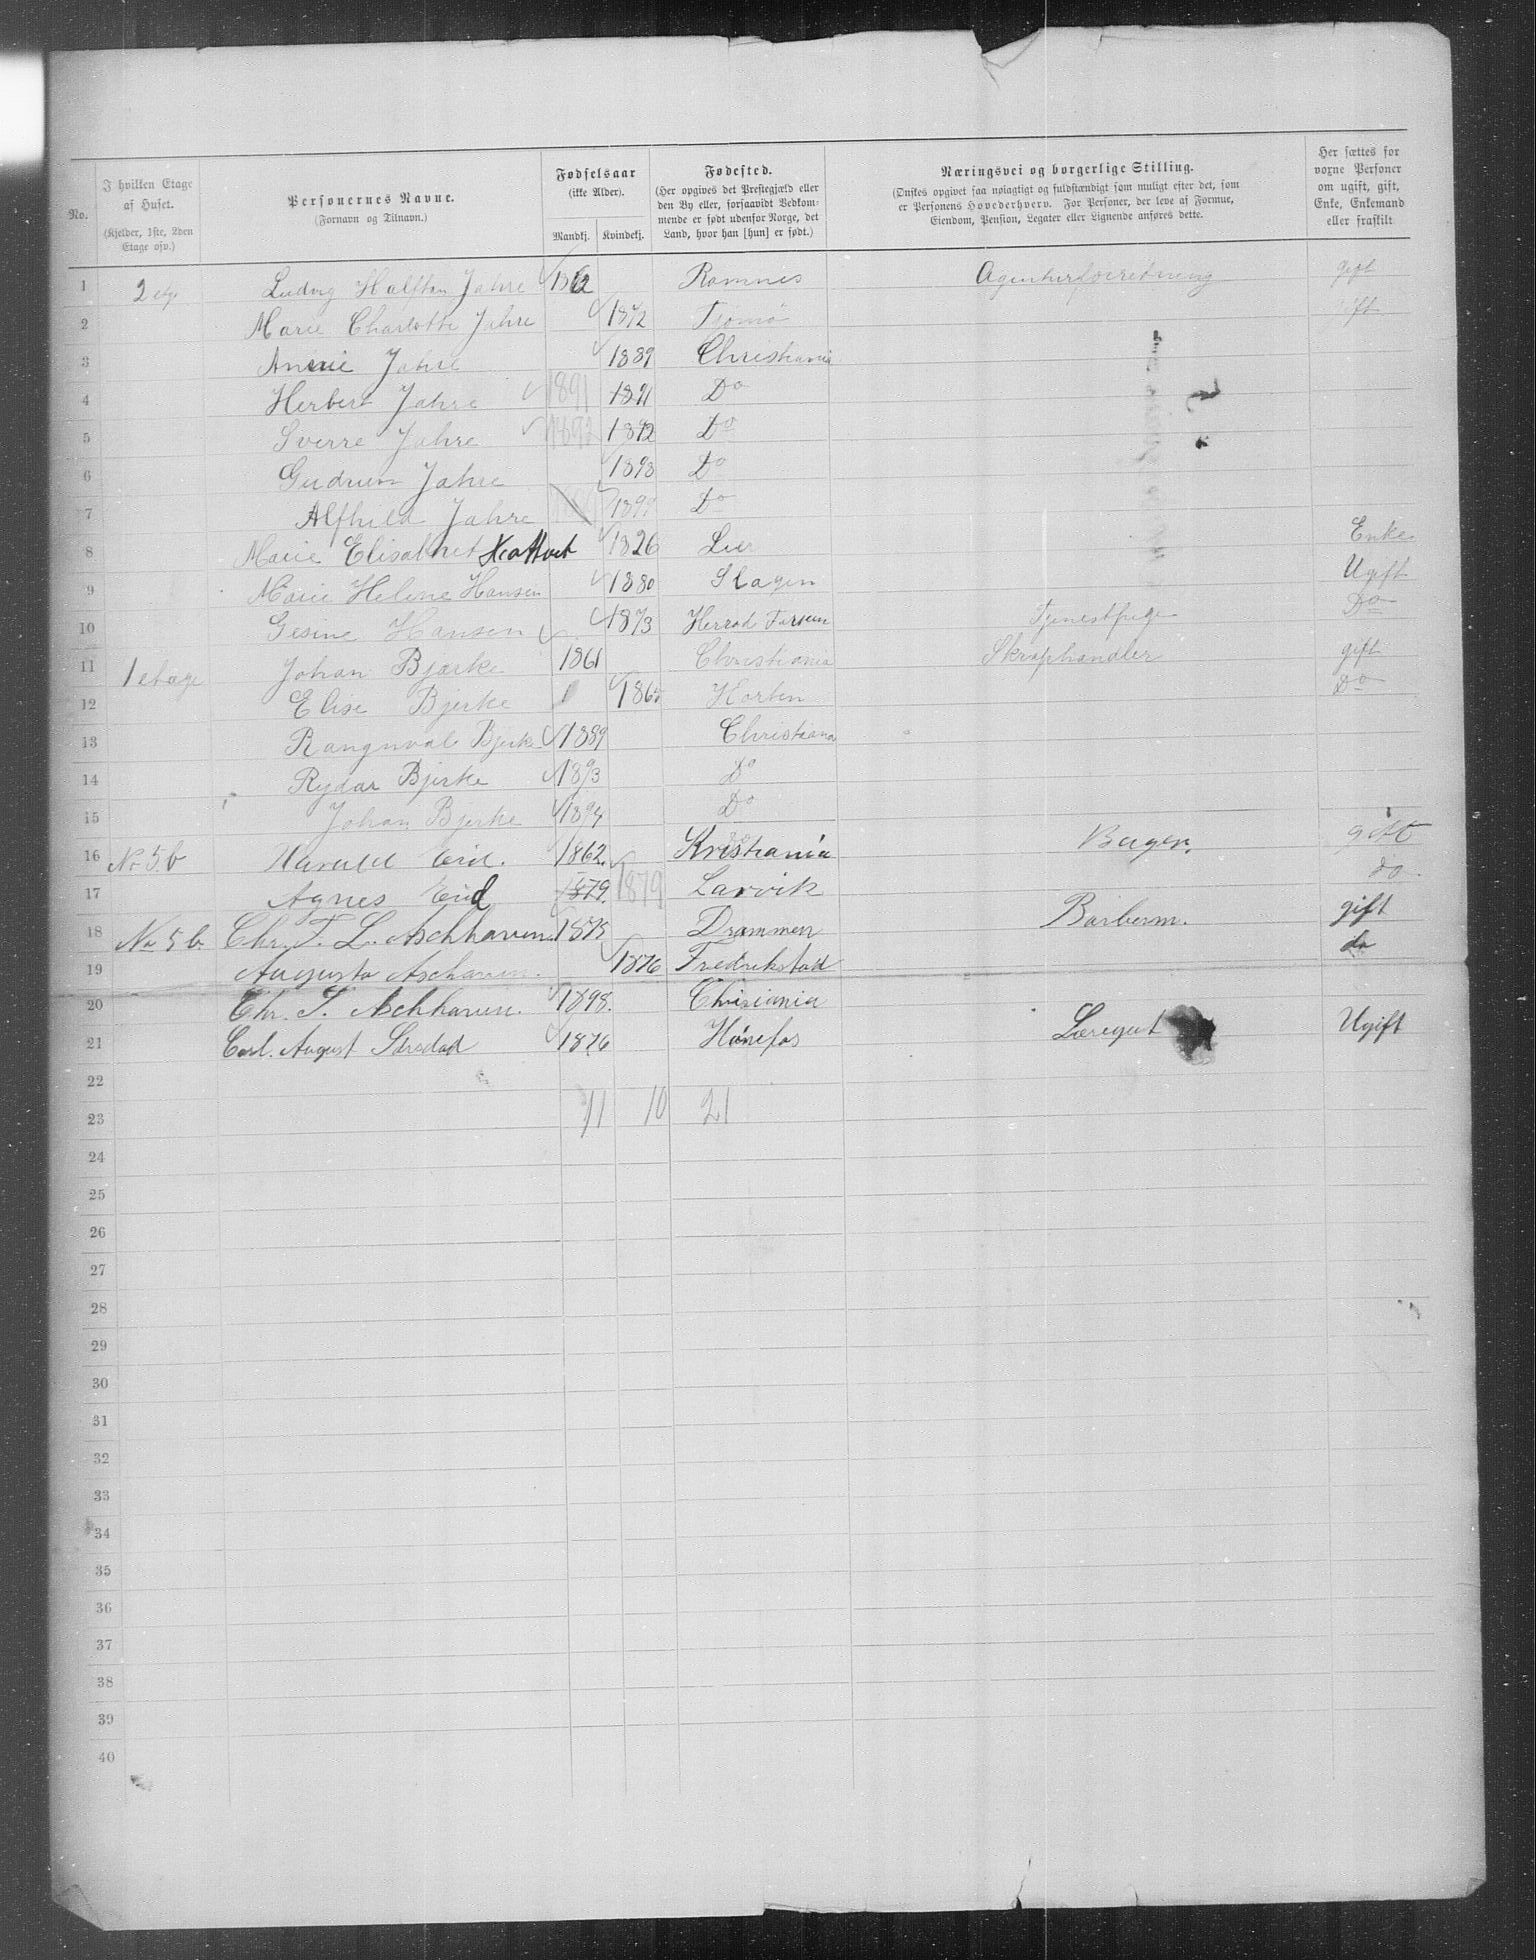 No. | I hvilken Etage af Huset. (Kjelder, 1ste, 2den Etage osv.) | Personernes Navne. (Fornavn og Tilnavn.) | Fødselsaar (ikke Alder). Mandkj. | Kvindekj. | Fødested. (Her opgives det Prestegjæld eller den By eller, forsaavidt Vedkommende er født udenfor Norge, det Land, hvor han [hun] er født.) | Næringsvei og borgerlige Stilling. (Ønskes opgivet saa nøiagtigt og fuldstændigt som muligt efter det, som er Personens Hovederhverv. For Personer, der leve af Formue, Eiendom, Pension, Legater eller Lignende anføres dette. | Her sættes for voxne Personer om ugift, gift, Enke, Enkemand eller fraskilt
1 2 etg. Ludvig Halftan Jahre 1862 Ramnes Agenturforretning gift
2 Marie Charlotte Jahre 1872 Tjomø gift
3 Annie Jahre 1889 Christiania
4 Herbert Jahre 1891 1891 Do
5 Sverre Jahre 1892 1892 Do
6 Gudrun Jahre 1898 Do
7 Alfhild Jahre 1899 Do
8 Marie Elisabhet 1826 Lier Enke
9 Marie Helene Hansen 1880 Slagen Ugift
10 Gesine Hansen 1873 Herred Tjenestpige Do
11 1 etage Johan Bjerke 1861 Christiania Skraphandler gift
12 Elise Bjerke 1865 Horten Do
13 Rangnval Bjerke 1889 Christiana
14 Rydar Bjerke 1893 Do
15 Johan Bjerke 1894 Do
16 No 5.b Harald Eid. 1862. Kristiania Bager. gift
17 Agnes Eid 1879. 1879 Larvik do.
18 No 5 b. Chr. T. L. Aschhaven 1875 Drammen Barberm. gift
19 Augusta Aschaven. 1876 Fredrikstad do
20 Chr. T. Aschhaven. 1898. Chrisiania
21 Carl. August 1876 Hønefos Læregut Ugift
22
23 11 10 21
24
25
26
27
28
29
30
31
32
33
34
35
36
37
38
39
40